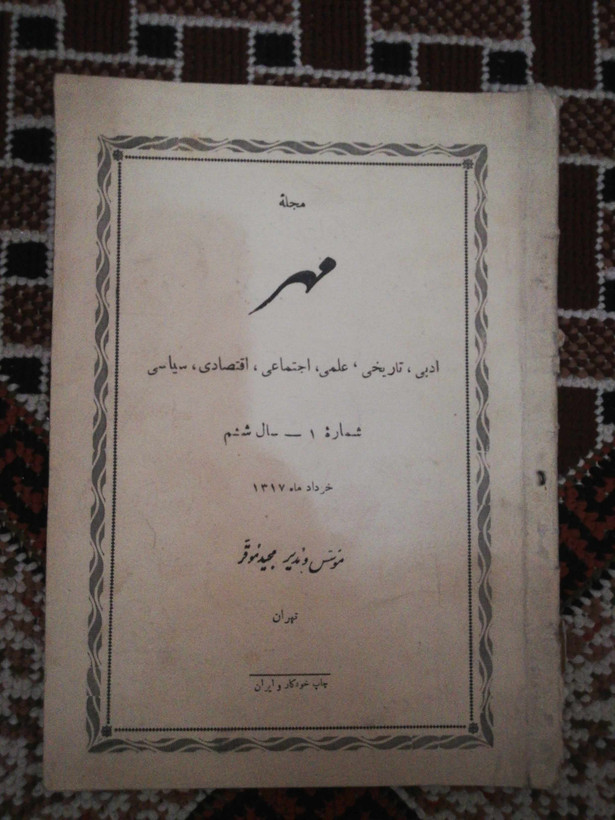 مجلهٔ
مهر
ادبی، تاریخی، علمی، اجتماعی، اقتصادی، سیاسی
شمارهٔ ۱ ـ سال ششم
خرداد ماه ۱۳۱۷
مؤسس و مدیر مجید موقر
تهران
چاپ خودکار و ایران